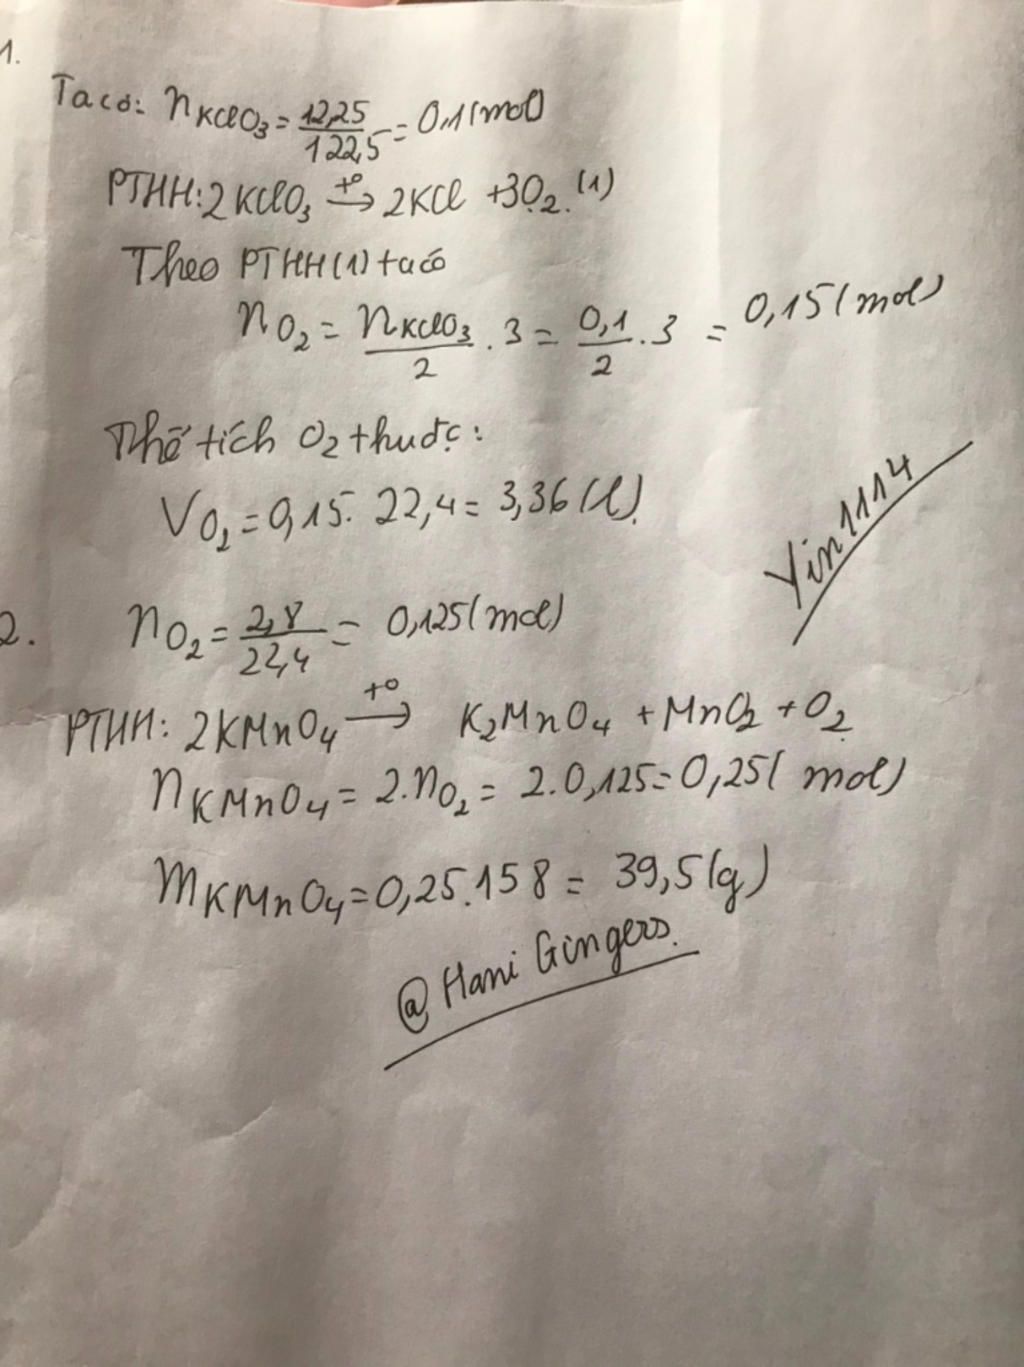 1.
Ta có: nKClO3 = 12,25/122,5 = 0,1(mol)
PTHH: 2KClO3 t°→ 2KCl + 3O2. (1)
Theo PTHH(1) ta có
nO2 = nKClO3/2 . 3 = 0,1/2 . 3 = 0,15(mol)
Thể tích O2 thuđc:
VO2 = 0,15. 22,4 = 3,36(l).
Yin1114
2. nO2 = 2,8/22,4 = 0,125(mol)
PTHH: 2KMnO4 t°→ K2MnO4 + MnO2 + O2
nKMnO4 = 2.nO2 = 2.0,125 = 0,25( mol)
mKMnO4 = 0,25.158 = 39,5(g)
@ Hani Gingers.